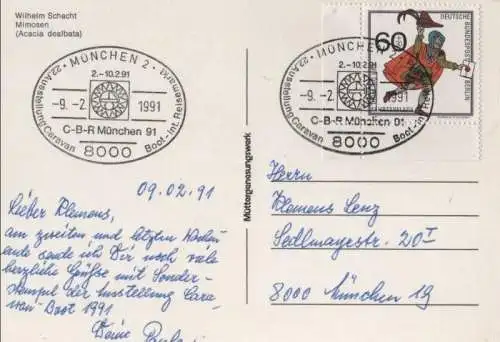 Wilhelm Schacht
Mimosen
(Acacia dealbata)
MÜNCHEN 2
22. Ausstellung Caravan Boot - Int. Reisemarkt
2.-10.2.91
-9.-2. 1991
C-B-R München 91
8000
MÜNCHEN 2
22. Ausstellung Caravan Boot - Int. Reisemarkt
2.-10.2.91
-9.-2. 1991
C-B-R München 91
8000
60
DEUTSCHE BUNDESPOST
BERLIN
Müttergenesungswerk
09.02.91
Lieber Klemens,
am zweiten und letzten Wochen
ende sende ich Dir noch viele
herzliche Grüße mit Sonder-
stempel der Ausstellung Cara
van-Boot 1991
Deine
Herrn
Klemens Lenz
Sedlmayrstr. 20 I
8000 München 19